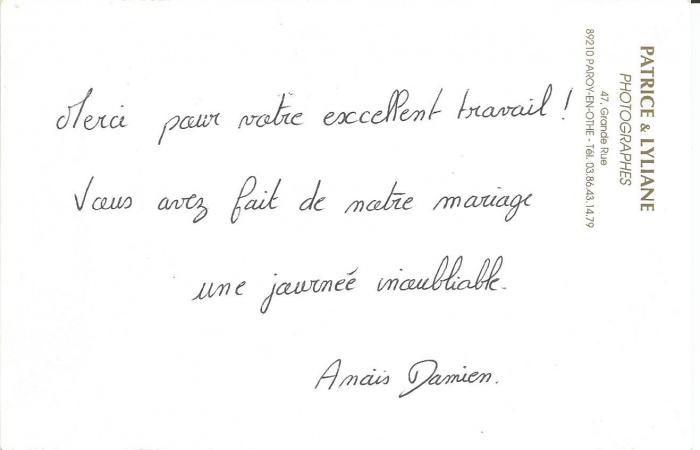 Merci pour votre excellent travail !
Vous avez fait de notre mariage
une journée inoubliable.
Anais Damien.
PATRICE & LYLIANE
PHOTOGRAPHES
47, Grande Rue
89210 PAROY-EN-OTHE - Tél. 03.86.43.14.79